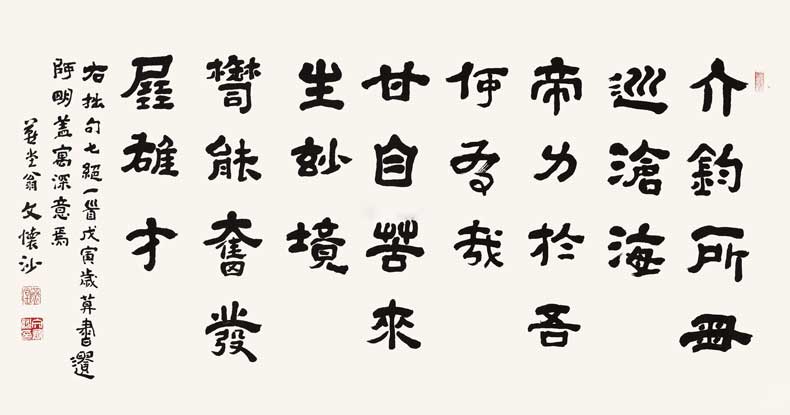 介鈞所
巡滄海
帝力於吾
何為哉
甘自苦來
生妙境
鬱能奮發
展雄才
右拙句七絕一首戊寅歲莫書還
明蓋寓深意焉
燕堂翁文懷沙